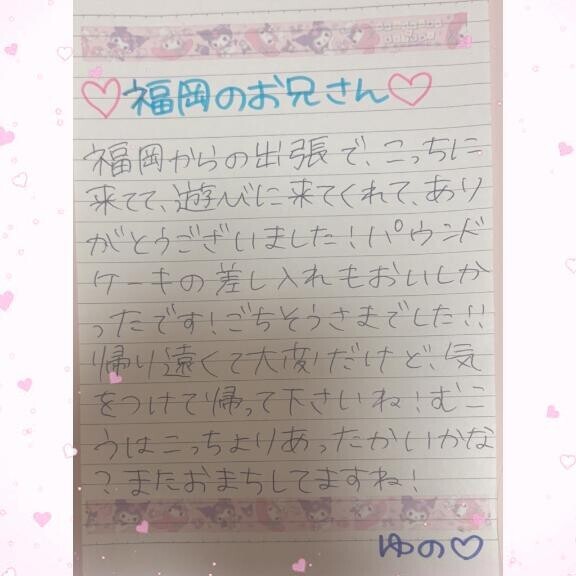 ♡福岡のお兄さん♡
福岡からの出張で、こっちに
来てて、遊びに来てくれて、あり
がとうございました!パウンド
ケーキの差し入れもおいしか
ったです!ごちそうさまでした!!
帰り遠くて大変だけど、気
をつけて帰って下さいね!むこ
うはこっちよりあったかいかな
?またおまちしてますね!
ゆの♡